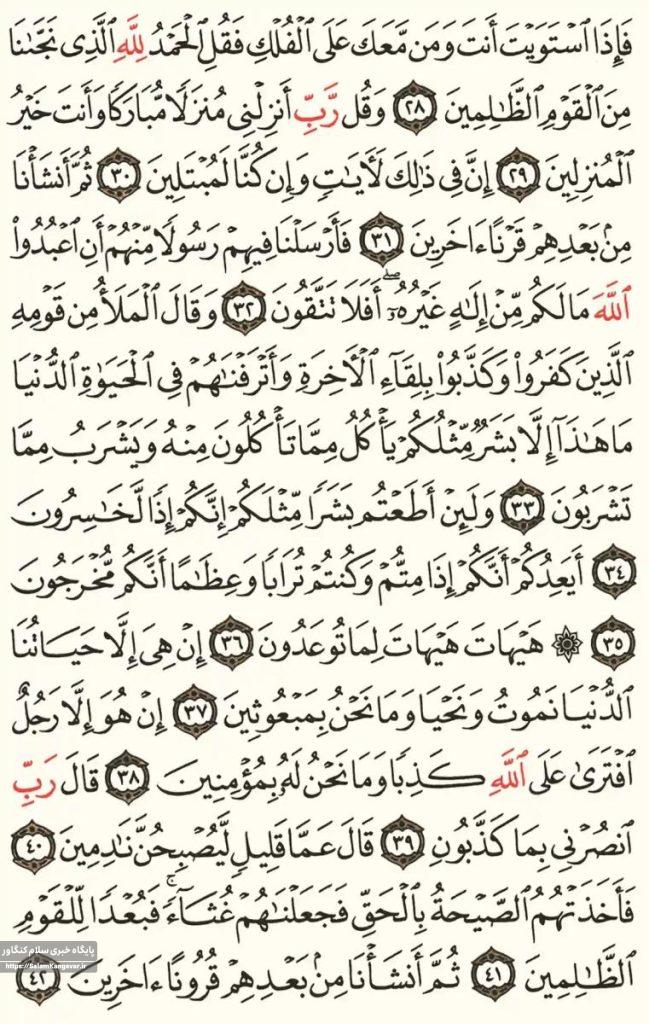 فَإِذَا ٱسْتَوَيْتَ أَنتَ وَمَن مَّعَكَ عَلَى ٱلْفُلْكِ فَقُلِ ٱلْحَمْدُ لِلَّهِ ٱلَّذِى نَجَّىٰنَا
مِنَ ٱلْقَوْمِ ٱلظَّٰلِمِينَ ٢٨ وَقُل رَّبِّ أَنزِلْنِى مُنزَلًا مُّبَارَكًا وَأَنتَ خَيْرُ
ٱلْمُنزِلِينَ ٢٩ إِنَّ فِى ذَٰلِكَ لَـَٔايَٰتٍ وَإِن كُنَّا لَمُبْتَلِينَ ٣٠ ثُمَّ أَنشَأْنَا
مِنۢ بَعْدِهِمْ قَرْنًا ءَاخَرِينَ ٣١ فَأَرْسَلْنَا فِيهِمْ رَسُولًا مِّنْهُمْ أَنِ ٱعْبُدُوا۟
ٱللَّهَ مَا لَكُم مِّنْ إِلَٰهٍ غَيْرُهُۥٓ ۖ أَفَلَا تَتَّقُونَ ٣٢ وَقَالَ ٱلْمَلَأُ مِن قَوْمِهِ
ٱلَّذِينَ كَفَرُوا۟ وَكَذَّبُوا۟ بِلِقَآءِ ٱلْـَٔاخِرَةِ وَأَتْرَفْنَٰهُمْ فِى ٱلْحَيَوٰةِ ٱلدُّنْيَا
مَا هَٰذَآ إِلَّا بَشَرٌ مِّثْلُكُمْ يَأْكُلُ مِمَّا تَأْكُلُونَ مِنْهُ وَيَشْرَبُ مِمَّا
تَشْرَبُونَ ٣٣ وَلَئِنْ أَطَعْتُم بَشَرًا مِّثْلَكُمْ إِنَّكُمْ إِذًا لَّخَٰسِرُونَ
٣٤ أَيَعِدُكُمْ أَنَّكُمْ إِذَا مِتُّمْ وَكُنتُمْ تُرَابًا وَعِظَٰمًا أَنَّكُم مُّخْرَجُونَ
٣٥ ۞ هَيْهَاتَ هَيْهَاتَ لِمَا تُوعَدُونَ ٣٦ إِنْ هِىَ إِلَّا حَيَاتُنَا
ٱلدُّنْيَا نَمُوتُ وَنَحْيَا وَمَا نَحْنُ بِمَبْعُوثِينَ ٣٧ إِنْ هُوَ إِلَّا رَجُلٌ
ٱفْتَرَىٰ عَلَى ٱللَّهِ كَذِبًا وَمَا نَحْنُ لَهُۥ بِمُؤْمِنِينَ ٣٨ قَالَ رَبِّ
ٱنصُرْنِى بِمَا كَذَّبُونِ ٣٩ قَالَ عَمَّا قَلِيلٍ لَّيُصْبِحُنَّ نَٰدِمِينَ ٤٠
فَأَخَذَتْهُمُ ٱلصَّيْحَةُ بِٱلْحَقِّ فَجَعَلْنَٰهُمْ غُثَآءً ۚ فَبُعْدًا لِّلْقَوْمِ
ٱلظَّٰلِمِينَ ٤١ ثُمَّ أَنشَأْنَا مِنۢ بَعْدِهِمْ قُرُونًا ءَاخَرِينَ ٤٢
پایگاه خبری سلام کنگاور
https://SalamKangavar.ir